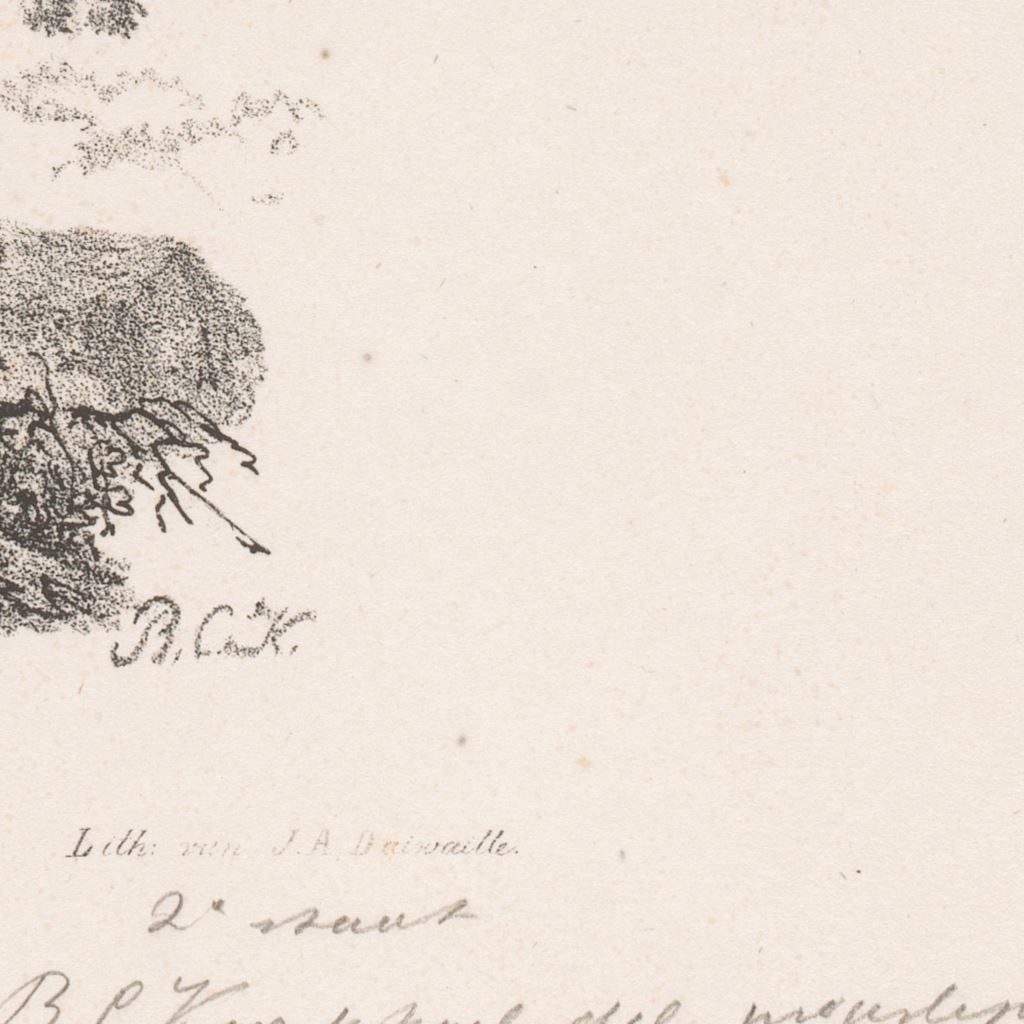 B.C.K.
Lith: van J. A. Daiwaille.
2e staat
B C K del